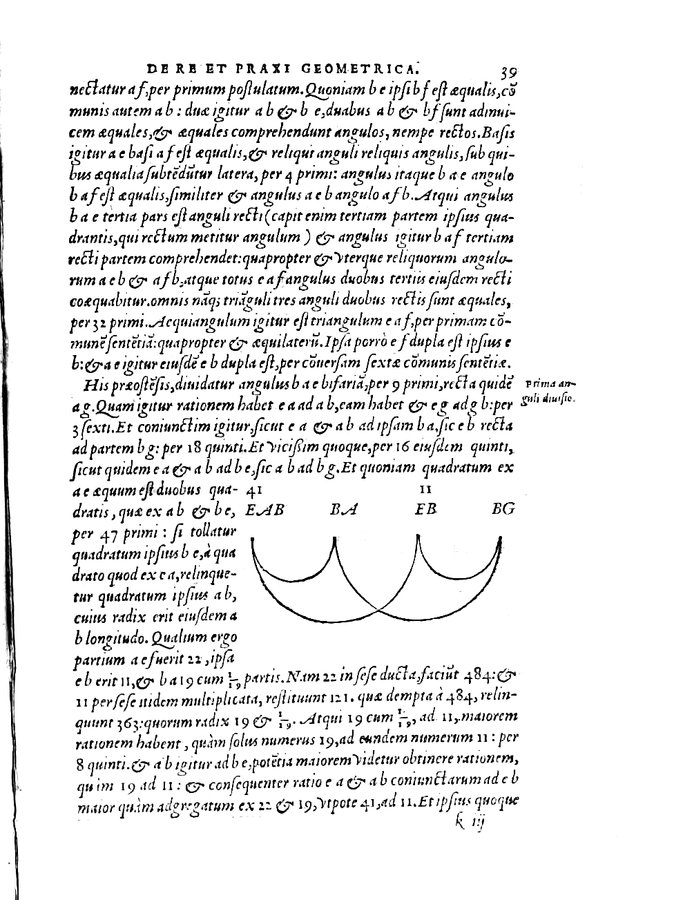 DE RE ET PRAXI GEOMETRICA. 39
nectatur a f, per primum postulatum. Quoniam b e ipsi b f est æqualis, cō
munis autem a b : duæ igitur a b & b e, duabus a b & b f sunt adinui-
cem æquales, & æquales comprehendunt angulos, nempe rectos. Basis
igitur a e basi a f est æqualis, & reliqui anguli reliquis angulis, sub qui-
bus æqualia subtēdūtur latera, per 4 primi: angulus itaque b a e angulo
b a f est æqualis, similiter & angulus a e b angulo a f b. Atqui angulus
b a e tertia pars est anguli recti (capit enim tertiam partem ipsius qua-
drantis, qui rectum metitur angulum) & angulus igitur b a f tertiam
recti partem comprehendet: quapropter & vterque reliquorum angulo-
rum a e b & a f b, atque totus e a f angulus duobus tertiis eiusdem recti
coæquabitur. omnis nāq; triāguli tres anguli duobus rectis sunt æquales,
per 32 primi. Aequiangulum igitur est triangulum e a f, per primam cō-
munē sentētiā: quapropter & æquilaterū. Ipsa porrò e f dupla est ipsius e
b: & a e igitur eiusdē e b dupla est, per cōuersam sextæ cōmunis sentētiæ.
His præostēsis, diuidatur angulus b a e bifariā, per 9 primi, recta quidē
Prima an-
guli diuisio.
a g. Quam igitur rationem habet e a ad a b, eam habet & e g ad g b: per
3 sexti. Et coniunctim igitur, sicut e a & a b ad ipsam b a, sic e b recta
ad partem b g: per 18 quinti. Et vicissim quoque, per 16 eiusdem quinti,
sicut quidem e a & a b ad b e, sic a b ad b g. Et quoniam quadratum ex
a e æquum est duobus qua-
dratis, quæ ex a b & b e,
per 47 primi : si tollatur
quadratum ipsius b e, à qua
drato quod ex e a, relinque-
tur quadratum ipsius a b,
cuius radix erit eiusdem a
b longitudo. Qualium ergo
partium a e fuerit 22, ipsa
41 11
EAB BA EB BG
e b erit 11, & b a 19 cum 1/19 partis. Nam 22 in sese ducta, faciūt 484: &
11 per sese itidem multiplicata, restituunt 121. quæ dempta à 484, relin-
quunt 363: quorum radix 19 & 1/19. Atqui 19 cum 1/19, ad 11, maiorem
rationem habent, quàm solus numerus 19, ad eundem numerum 11 : per
8 quinti. & a b igitur ad b e, potētia maiorem videtur obtinere rationem,
quàm 19 ad 11 : & consequenter ratio e a & a b coniunctarum ad e b
maior quàm adgregatum ex 22 & 19, vtpote 41, ad 11. Et ipsius quoque
k iij